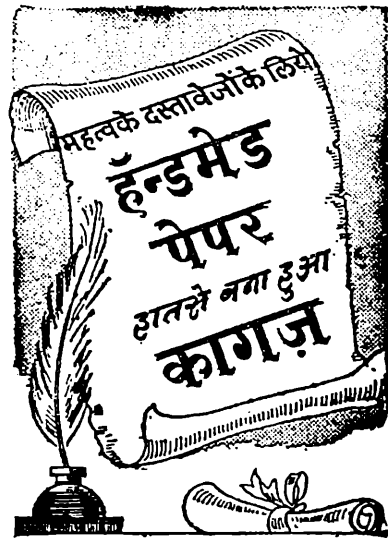 महत्वके दस्तावेजोंके लिये
हॅन्डमेड
पेपर
हातसे बना हुआ
कागज़